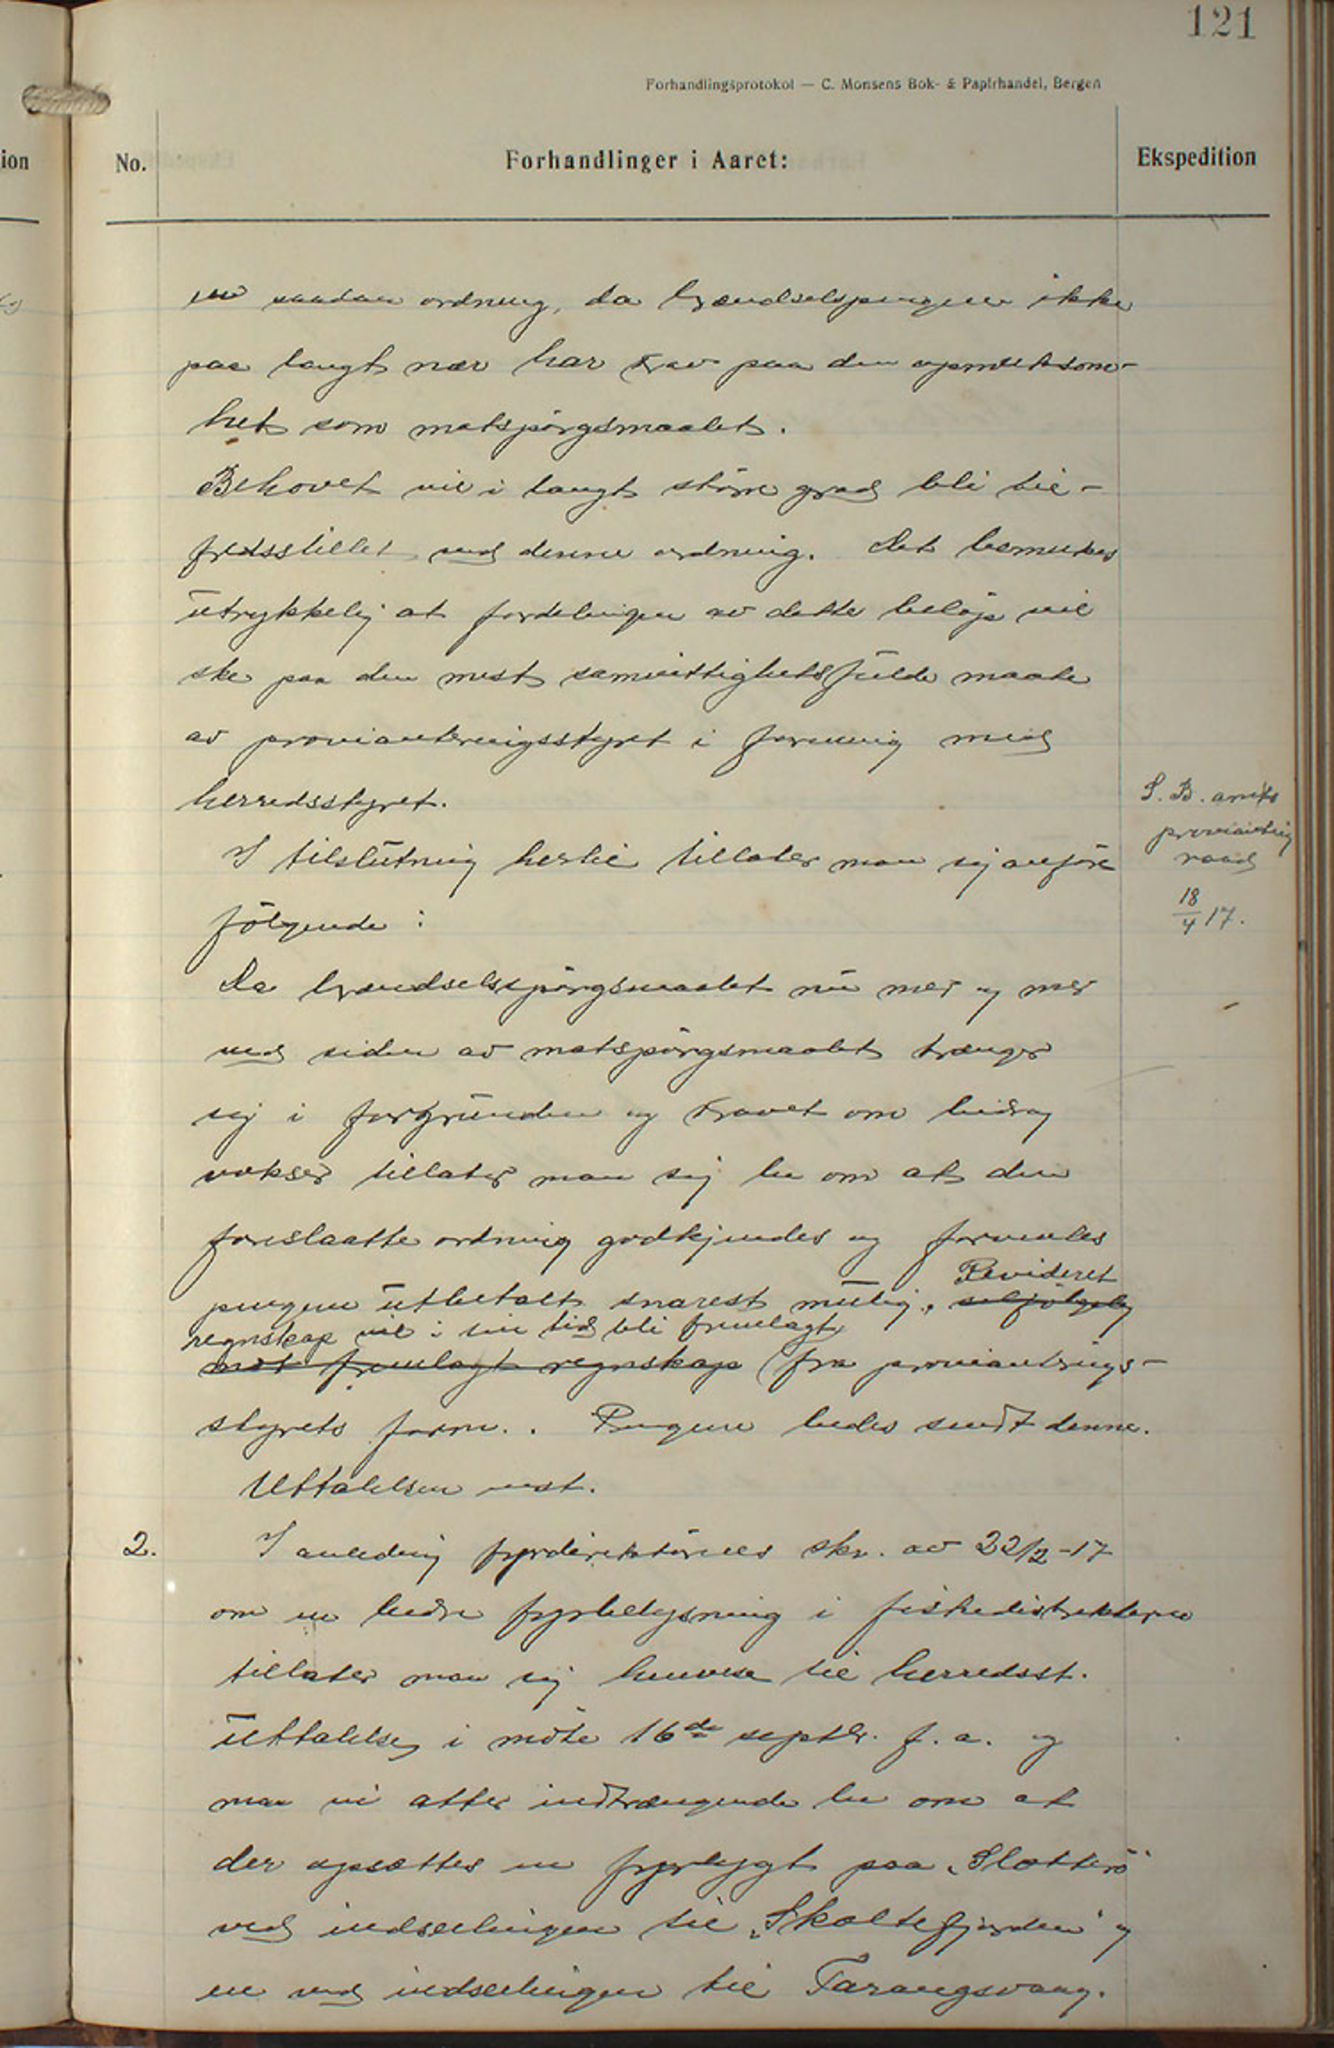 121
Forhandlingsprotokol — C. Monsens Bok- & Papirhandel, Bergen
ion
No.
Forhandlinger i Aaret:
Ekspedition
en saadan ordning, da brændselspengene ikke
paa langt nær har krav paa den opmerksom-
het som matspörgsmaalet.
Behovet vil i langt större grad bli til-
fredsstillet ved denne ordning. Det bemerkes
utrykkelig at fordelingen av dette belöp vil
ske paa den mest samvittighetsfulde maate
av provianteringsstyret i forening med
herredsstyret.
S. B. amts
proviantering
raad
18/4 17.
I tilslutning hertil tillater man sig anföre
fölgende:
Da brændselsspörgsmaalet nu mer og mer
ved siden av matspörgsmaalet trænger
sig i forgrunden og kravet om bidrag
vokser tillater man sig be om at den
foreslaatte ordning godkjendes og forventes
pengene utbetalt snarest mulig. selfölgelig Revideret
regnskap vil i sin tid bli fremlagt
mot fremlagt regnskap (fra provianterings-
styrets form.. Pengene bedes sendt denne.
Uttalelsen enst.
2. I anledning fyrdirektörens skr. av 22/2-17
om en bedre fyrbelysning i fiskedistrikterne
tillater man sig henvise til herredsst.
uttalelse i möte 16de septbr. f.a. og
maa vi atter indtrængende be om at
der opsættes en fyrlygt paa "Slotterö"
ved indseilingen til "Skoltefjorden" og
en ved indseilingen til Tarangsvaag.